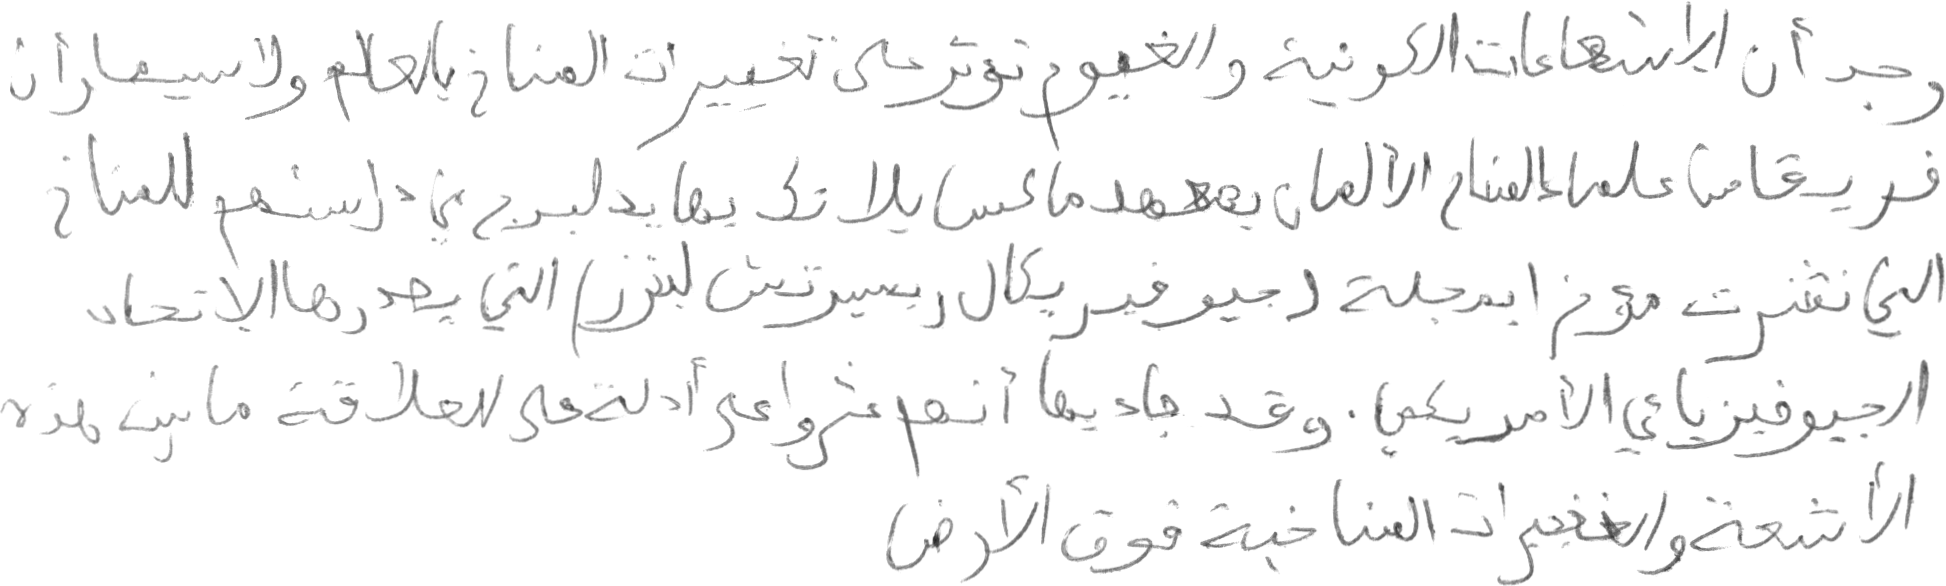 وجد أن الإشعاعات الكونية والغيوم تؤثر على تغييرات المناخ بالعالم ولا سيما وأن
فريقا من علماء المناخ الألمان بمعهد ماكس بلانك بهايدلبرج في دراستهم للمناخ
التي نشرت مؤخرا بمجلة (جيوفيزيكال ريسيرتش ليترز) التي يصدرها الاتحاد
الجيوفيزيائي الأمريكي. وقد جاء بها أنهم عثروا على أدلة على العلاقة ما بين هذه
الأشعة والتغييرات المناخية فوق الأرض